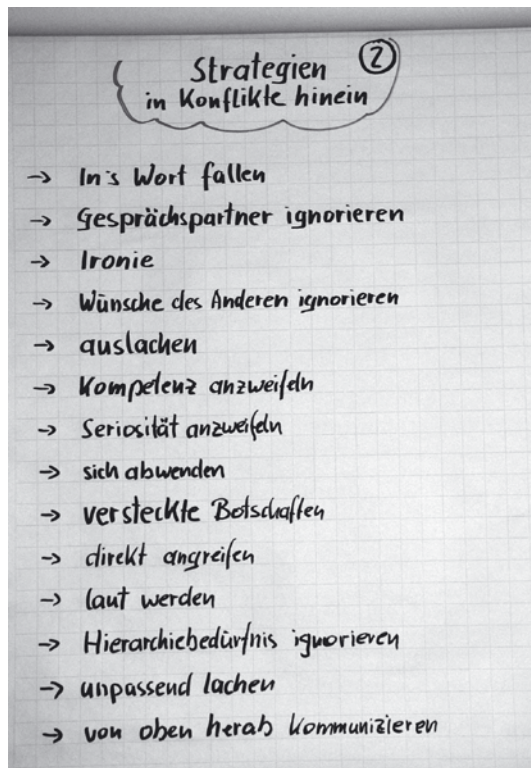 Strategien ②
in Konflikte hinein
→ In's Wort fallen
→ Gesprächspartner ignorieren
→ Ironie
→ Wünsche des Anderen ignorieren
→ auslachen
→ Kompetenz anzweifeln
→ Seriosität anzweifeln
→ sich abwenden
→ versteckte Botschaften
→ direkt angreifen
→ laut werden
→ Hierarchiebedürfnis ignorieren
→ unpassend lachen
→ von oben herab kommunizieren